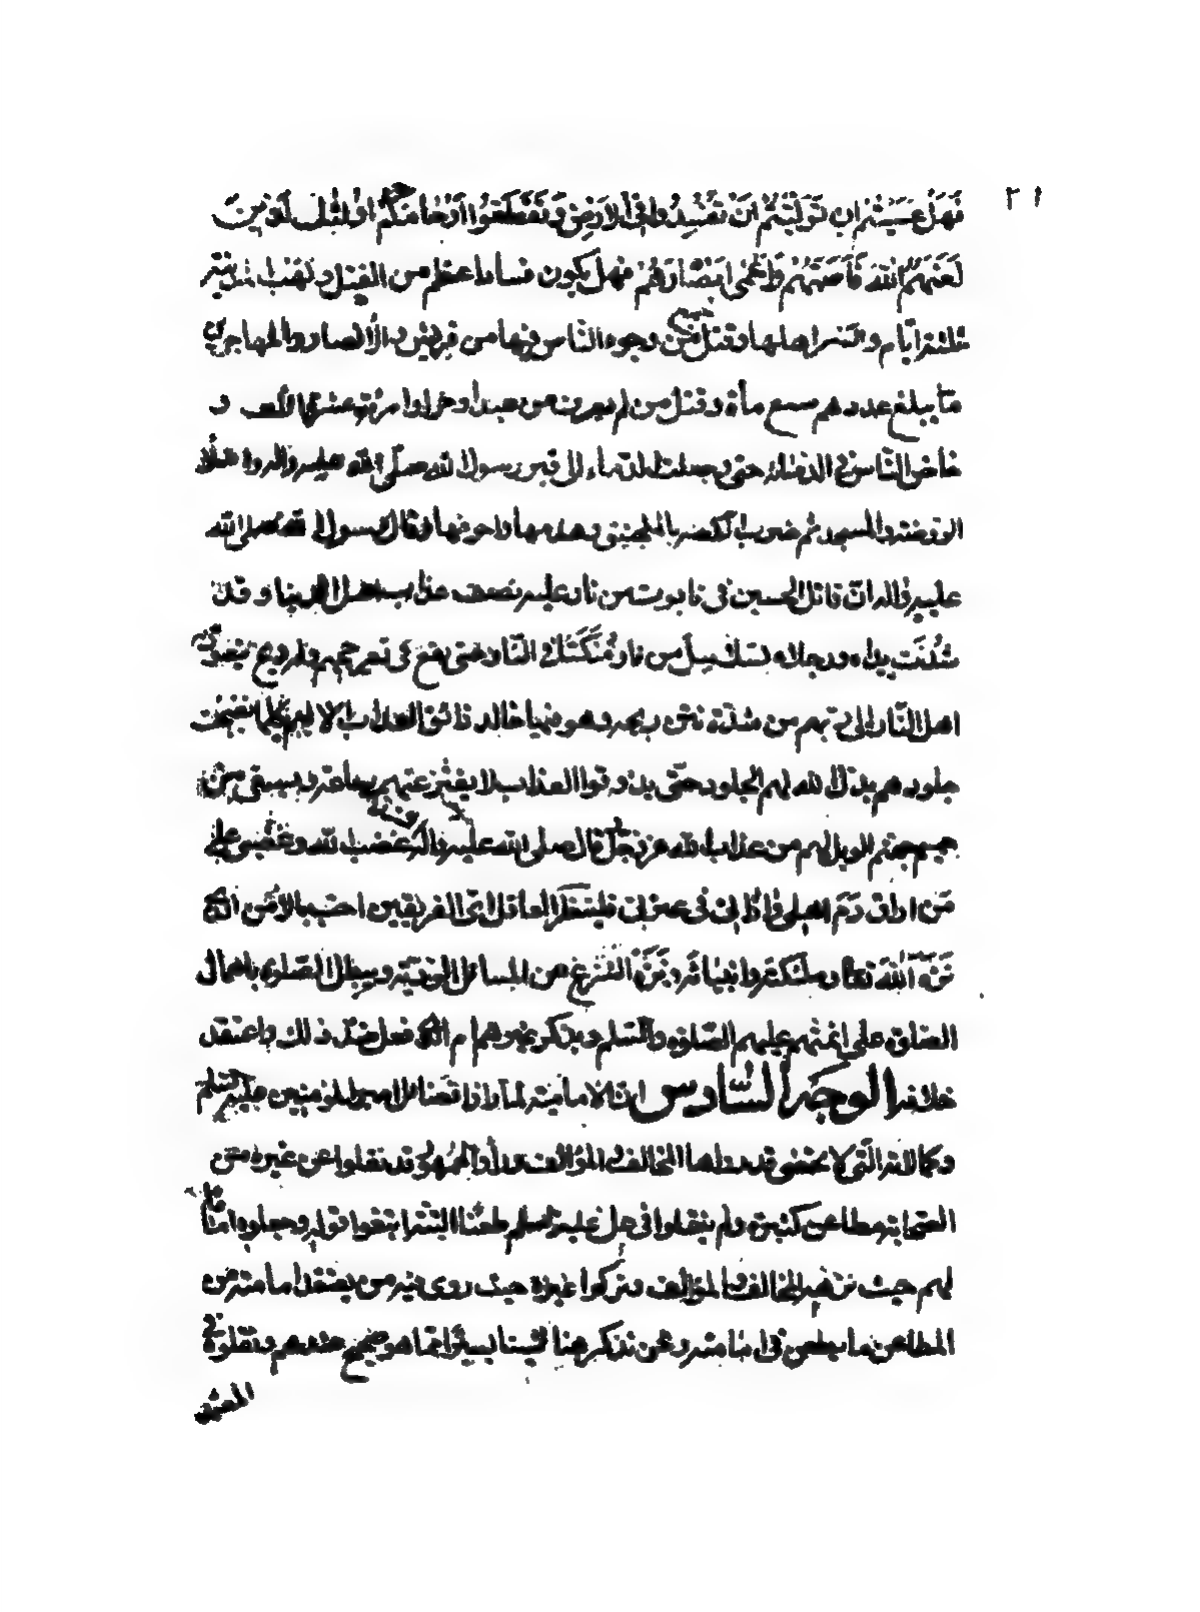 ٢١
فَهَلْ عَسَيْتُمْ ان تَوَلَّيْتُمْ اَنْ تُفْسِدُوا فِى الْاَرْضِ وَ تُقَطِّعُوا اَرْحَامَكُمْ اولئك الَّذِينَ
لَعَنَهُمُ اللهُ فَاَصَمَّهُمْ وَاَعْمَى اَبْصَارَهُمْ فهل يكون فساد اعظم من القتل و نهب المدينة
ثلثة ايّام و اهلها و قتل من وجوه الناس فيها من قريش و الأنصار والمهاجرين
من يبلغ عددهم سبع مأة و قتل من لم يعرف من عبد او حر او امرأة عشرة الاف و
خاض الناس فى الدماء حتى وصلت الدماء الى قبر رسول الله صلّى الله عليه واله و امتلأ
الروضة و المسجد ثم ضرب الكعبة بالمنجنيق و هدمها و احرقها و قال رسول الله صلى الله
عليه واله انّ قاتل الحسين فى تابوت من نار عليه نصف عذاب اهل الدنيا و قد
شُدَّت يداه ورجلاه بسلاسل من نار مُنَكَّس فى النّار حتى يقع فى قعر جهنم وله ريح يتعوّذ
اهل النّار الى ربّهم من شدّة نتن ريحه و هو فيها خالد ذائق العذاب الاليم كلما نضجت
جلودهم بدّل الله لهم الجلود حتى يذوقوا العذاب لا يفتر عنهم ساعة و يسقى من
حميم جهنم الويل لهم من عذاب الله عزوجل قال صلى الله عليه واله غضب الله و غضبى على
مَن اراق دَمَ اهلى و اذانى فى عترتى فلينظر العاقل اىّ الفريقين احق بالأمن الذى
نَزَّهَ اللهَ تعالى و ملئكته و انبيائه و نَزَّه الشرع عن المسائل الرديّة و يبطل الصلوة باهمال
الصلوة على ائمتهم عليهم الصّلوة والسّلم و يذكر غيرهم ام الذى فعل ضدّ ذلك و اعتقد
خلافه الوجه السّادس انّ الاماميّة لمّا رأوا فضائل امير المؤمنين عليه السلم
وكمالاته التى لا تحصى قد رواها المخالف و المؤالف و رأوا الجمهور قد نقلوا عن غيره من
الصحابة مطاعن كثيرة و لم ينقلوا فى على عليه السلم طعنا البتّة اتبعوا قوله و جعلوه اماماً
لهم حيث نزهه المخالف و المؤالف و تركوا غيره حيث روى فيه من يعتقد امامته من
المطاعن ما يطعن فى امامته و نحن نذكر هنا شيئا يسيرًا مما هو صحيح عندهم و نقلوه فى
المعتمد